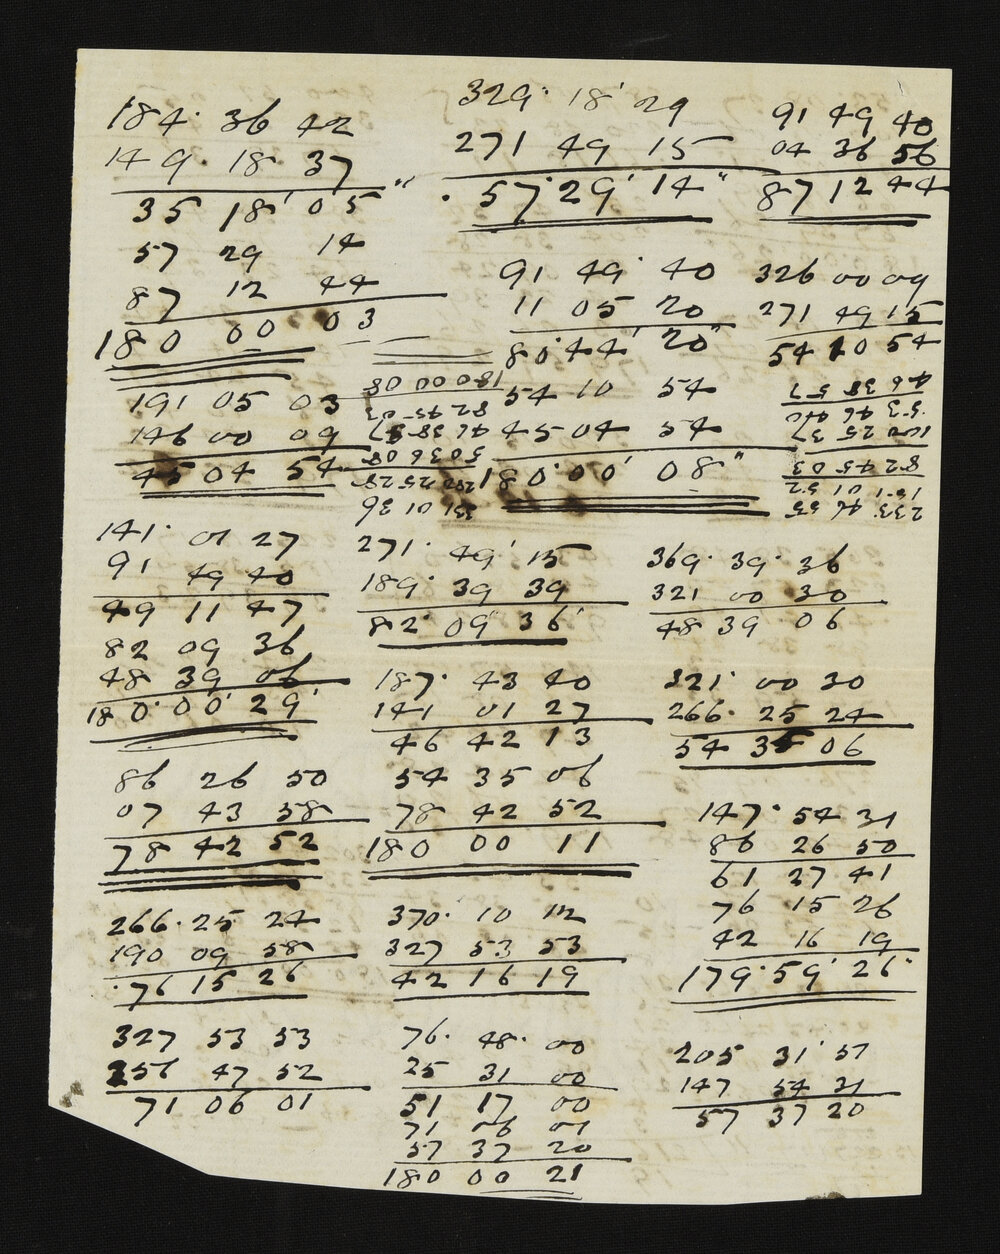 184· 36 42
149· 18 37
35 18' 05"
57 29 14
87 12 44
180 00 03
191 05 03
146 00 09
45 04 54
329· 18' 29
271 49 15
57° 29' 14"
91 49 40
04 36 56
87 12 44
91 49· 40
11 05 20
80° 44' 20"
326 00 09
271 49 15
54 10 54
54 10 54
45 04 54
180° 00' 08"
331 01 36
50 36 08
46 38 57
82 45 03
180 00 08
233· 46 35
151 01 32
82 45 03
100 25 37
53 46 40
46 38 57
141· 01 27
91 49 40
49 11 47
82 09 36
48 39 06
180· 00' 29'
271· 49' 15
189· 39 39
82· 09' 36'
369· 39· 36
321 00 30
48 39 06
187· 43 40
141 01 27
46 42 13
54 35 06
78 42 52
180 00 11
321· 00 30
266· 25 24
54 35 06
86 26 50
07 43 58
78 42 52
147· 54 31
86 26 50
61 27 41
76 15 26
42 16 19
179· 59' 26·
266· 25 24
190 09 58
76 15 26
370· 10 12
327 53 53
42 16 19
327 53 53
256 47 52
71 06 01
76· 48· 00
25 31 00
51 17 00
71 06 01
57 37 20
180 00 21
205 31' 51
147 54 31
57 37 20